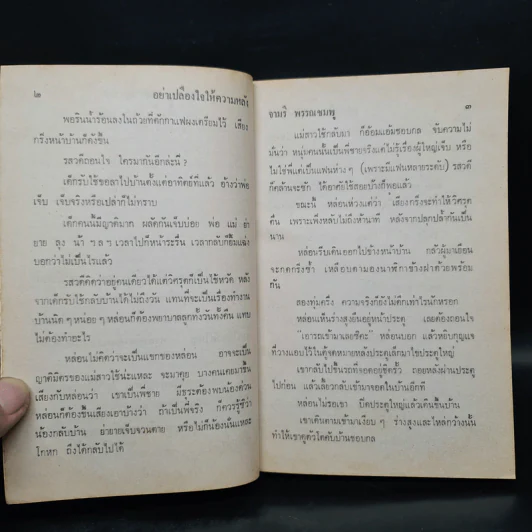 ๒ อย่าเปลืองใจให้ความหลัง
พอรินน้ำร้อนลงในถ้วยที่ตักกาแฟผงเตรียมไว้ เสียง
กริ่งหน้าบ้านก็ดังขึ้น
รสวดีถอนใจ ใครมากันอีกล่ะนี่ ?
เด็กรับใช้ขอลาไปบ้านตั้งแต่อาทิตย์ที่แล้ว อ้างว่าพ่อ
เจ็บ เจ็บจริงหรือเปล่าก็ไม่ทราบ
เด็กคนนี้มีญาติมาก ผลัดกันเจ็บบ่อย พ่อ แม่ ย่า
ยาย ลุง น้า ฯลฯ เวลาไปก็หน้าระรื่น เวลากลับก็ยิ้มแฉ่ง
บอกว่าไม่เป็นไรแล้ว
รสวดีคิดว่าอยู่คนเดียวได้แต่วิศรุตก็เป็นไข้หวัด หลัง
จากเด็กรับใช้กลับบ้านได้ไม่ถึงวัน แทนที่จะเป็นเรื่องทำงาน
บ้านนิด ๆ หน่อย ๆ หล่อนก็ต้องพยาบาลลูกทั้งวันทั้งคืน แทบ
ไม่ต้องทำอะไร
หล่อนไม่คิดว่าจะเป็นแขกของหล่อน อาจจะเป็น
ญาติมิตรของแม่สาวใช้น่ะแหละ จะมาคุย บางคนเคยมาขึ้น
เสียงกับหล่อนว่า เขาเป็นพี่ชาย มีธุระต้องพบน้องด่วน
หล่อนก็ต้องขึ้นเสียงเอาบ้างว่า ถ้าเป็นพี่จริง ก็ควรรู้ซีว่า
น้องกลับบ้าน อ่ายายเจ็บจวนตาย หรือไม่ก็น้องนั่นแหละ
โกหก ถึงได้กลับไปได้
จามรี พรรณชมพู ๓
แม่สาวใช้กลับมา ก็อ้อมแอ้มชอบกล จับความไม่
มั่นว่า หนุ่มคนนั้นเป็นพี่ชายจริงแต่ไม่รู้เรื่องผู้ใหญ่เจ็บ หรือ
ไม่ใช่พี่แต่เป็นแฟนห่าง ๆ (เพราะมีแฟนหลายระดับ) รสวดี
ก็คร้านจะซัก ได้อาศัยใช้สอยบ้างก็พอแล้ว
ขณะนี้ หล่อนห่วงแต่ว่า เสียงกริ่งจะทำให้วิศรุต
ตื่น เพราะเพิ่งหลับไปไม่ถึงห้านาที หลังจากปลุกปล้ำกันเป็น
นาน
หล่อนรีบเดินออกไปข้างหน้าบ้าน กลัวผู้มาเยือน
จะกดกริ่งซ้ำ เหลือบตามองนาฬิกาข้างฝาด้วยพร้อม
กัน
สองทุ่มครึ่ง ความจริงก็ยังไม่ดึกเท่าไรนักหรอก
หล่อนเห็นร่างสูงยืนอยู่หน้าประตู เลยต้องถอนใจ
“เอารถเข้ามาเลยซีคะ” หล่อนบอก แล้วหยิบกุญแจ
ที่วางแอบไว้ในตู้จดหมายหลังประตูเล็กมาไขประตูใหญ่
เขากลับไปขึ้นรถที่จอดอยู่ชิดรั้ว ถอยหลังผ่านประตู
ไปก่อน แล้วเลี้ยวกลับเข้ามาจอดในบ้านอีกที
หล่อนไม่รอเขา ปิดประตูใหญ่แล้วเดินขึ้นบ้าน
เขาเดินตามเข้ามาเงียบ ๆ ร่างสูงและไหล่กว้างนั้น
ทำให้เขาดูตัวโตคับบ้านชอบกล